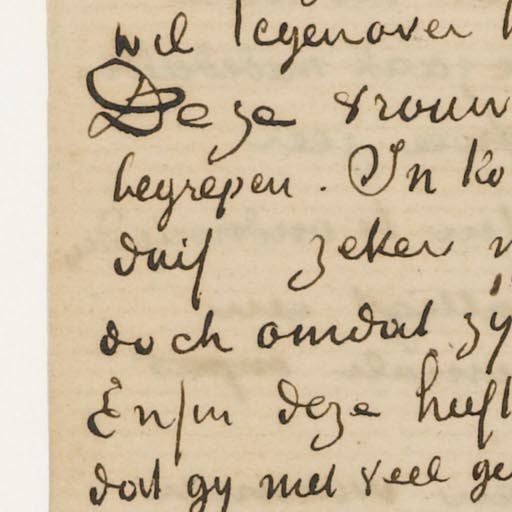 wel tegenover
Deze vrouw
begrepen. In ko
duif zeker
doch omdat zy
Enfin deze heeft
dat gy met veel ge